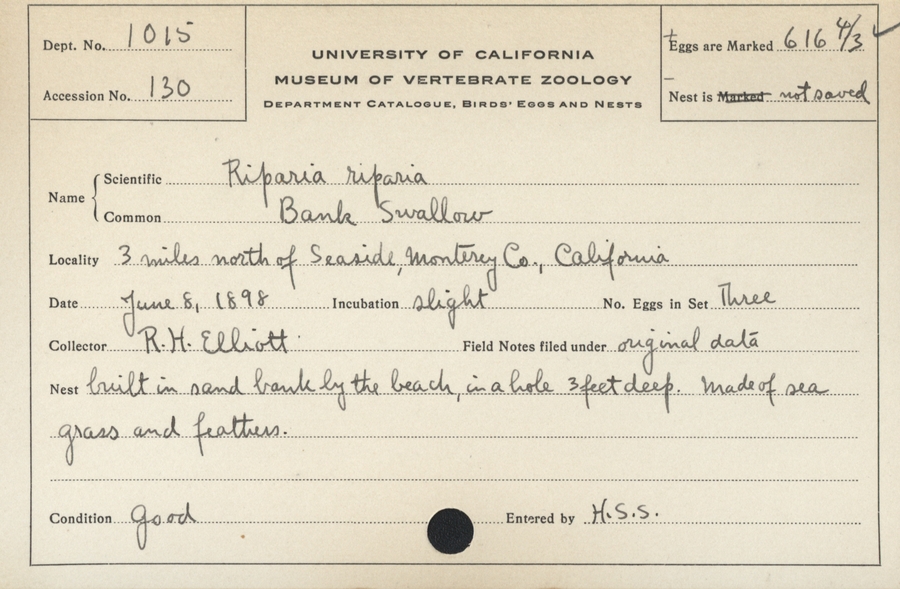 Dept. No. 1015
Accession No. 130
UNIVERSITY OF CALIFORNIA
MUSEUM OF VERTEBRATE ZOOLOGY
DEPARTMENT CATALOGUE, BIRDS' EGGS AND NESTS
Eggs are Marked 616 4/3
Nest is Marked not saved
Name
Scientific Riparia riparia
Common Bank Swallow
Locality 3 miles north of Seaside, Monterey Co., California
Date June 8, 1898 Incubation slight No. Eggs in Set Three
Collector R.H. Elliott Field Notes filed under original data
Nest built in sand bank by the beach, in a hole 3 feet deep. Made of sea
grass and feathers.
Condition good Entered by H.S.S.